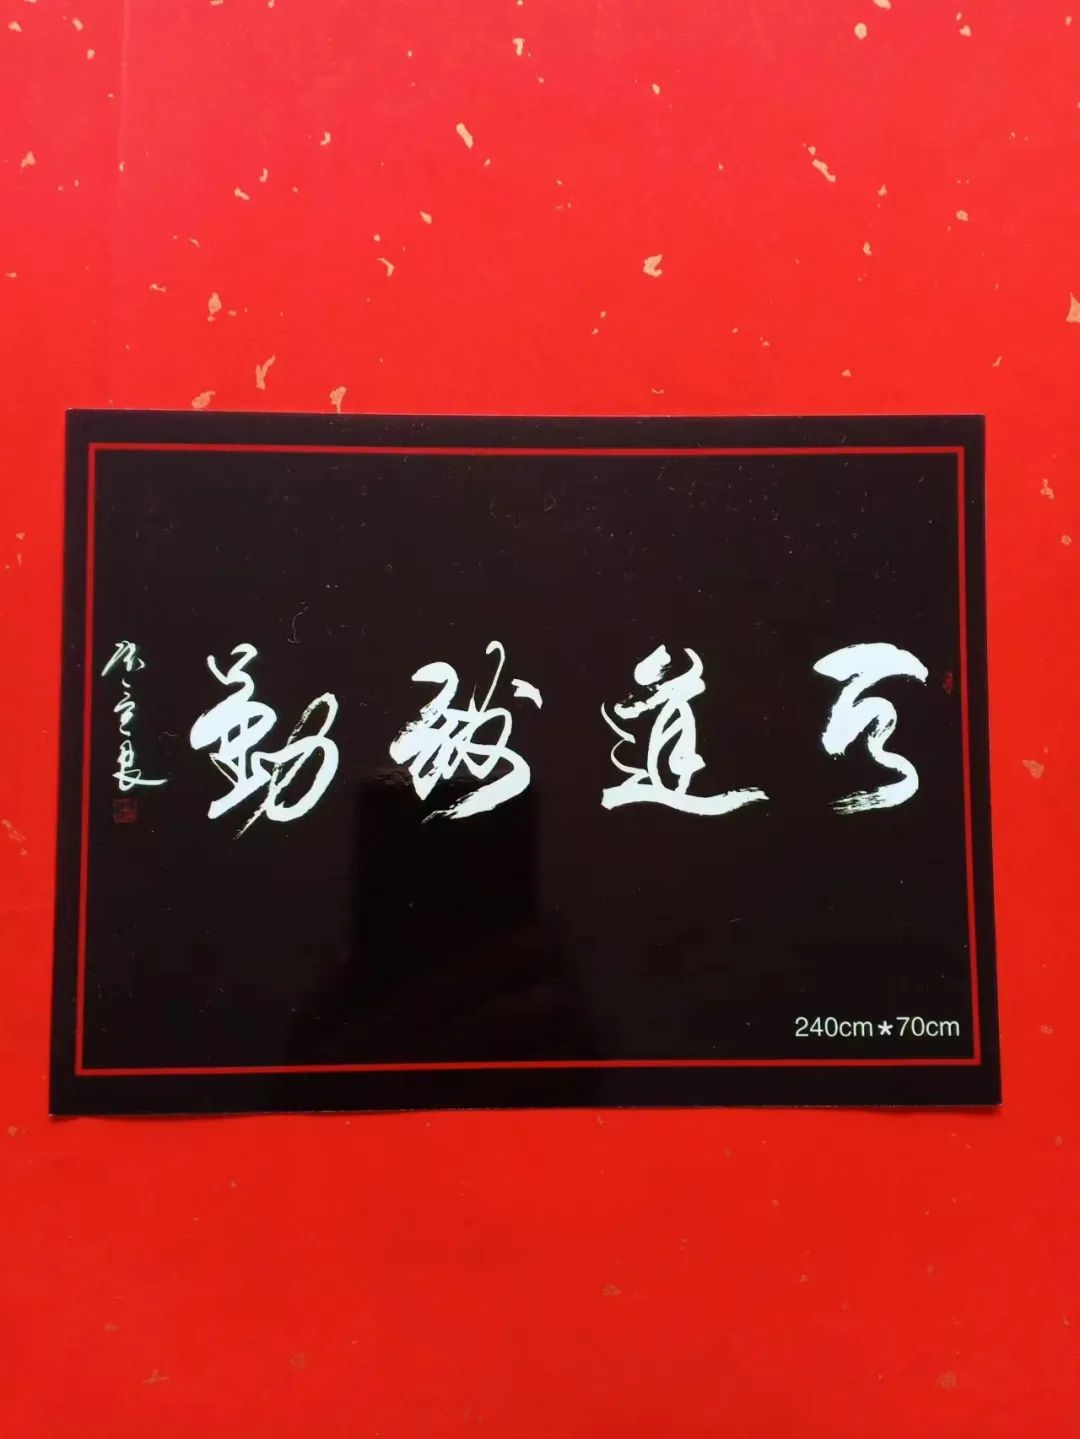 天道酬勤
240cm*70cm